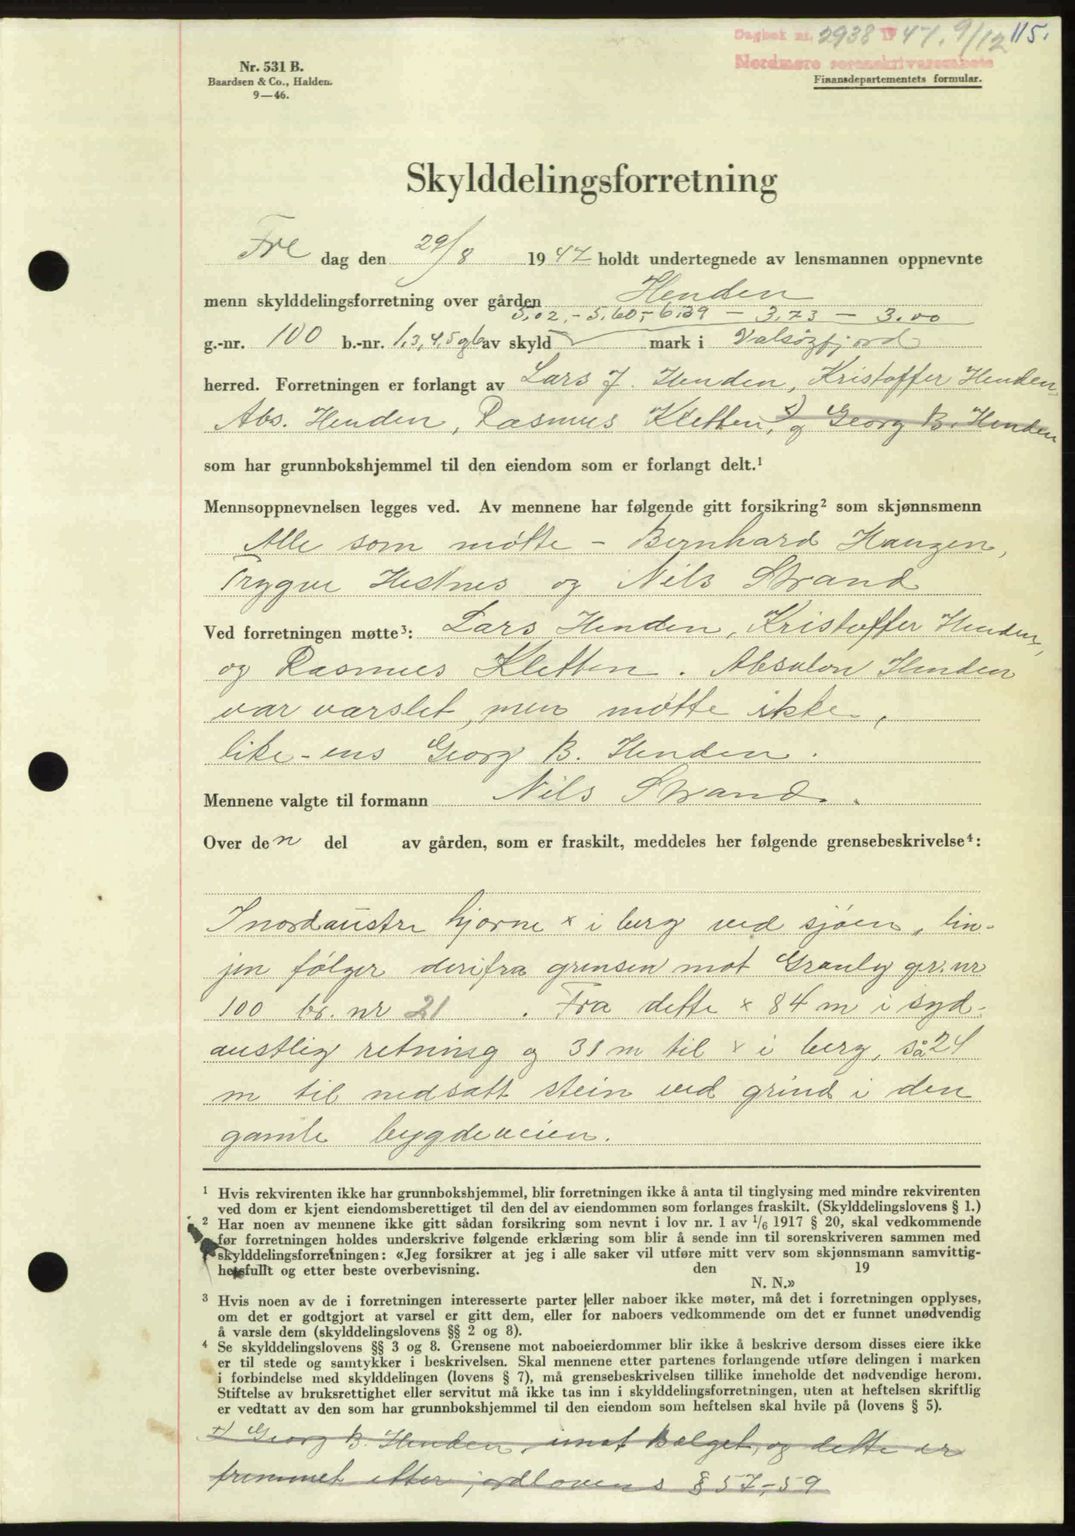 Dagbok nr. 2938 1947. 9/12 115.
Nordmøre sorenskrivarembete
Nr. 531 B.
Baardsen & Co., Halden.
9—46.
Finansdepartementets formular.
Skylddelingsforretning
Fre dag den 29/8 1947 holdt undertegnede av lensmannen oppnevnte
menn skylddelingsforretning over gården Henden
5.02,- 5,60,- 6.39 — 3.73 — 3.00
g.-nr. 100 b.-nr. 1,3,4,5 og 6 av skyld mark i Valsøyfjord
herred. Forretningen er forlangt av Lars J. Henden, Kristoffer Henden,
Abs. Henden, Rasmus Kletten, x) og Georg B. Henden
som har grunnbokshjemmel til den eiendom som er forlangt delt.¹
Mennsoppnevnelsen legges ved. Av mennene har følgende gitt forsikring² som skjønnsmenn
Alle som møtte – Bernhard Haugen,
Trygve Hestnes og Nils Strand
Ved forretningen møtte³: Lars Henden, Kristoffer Henden,
og Rasmus Kletten. Absalon Henden
var varslet, men møtte ikke,
like-ens Georg B. Henden.
Mennene valgte til formann Nils Strand.
Over den del av gården, som er fraskilt, meddeles her følgende grensebeskrivelse⁴:
I nordaustre hjørne x i berg ved sjøen, lin-
jen følger derifra grensen mot Granly gr. nr
100 br. nr 21. Fra dette x 84 m i syd-
austlig retning og 31 m til x i berg, så 24
m til nedsatt stein ved grind i den
gamle bygdeveien.
¹ Hvis rekvirenten ikke har grunnbokshjemmel, blir forretningen ikke å anta til tinglysing med mindre rekvirenten
ved dom er kjent eiendomsberettiget til den del av eiendommen som forlanges fraskilt. (Skylddelingslovens § 1.)
² Har noen av mennene ikke gitt sådan forsikring som nevnt i lov nr. 1 av 1/6 1917 § 20, skal vedkommende
før forretningen holdes underskrive følgende erklæring som blir å sende inn til sorenskriveren sammen med
skylddelingsforretningen: «Jeg forsikrer at jeg i alle saker vil utføre mitt verv som skjønnsmann samvittig-
hetsfullt og etter beste overbevisning. den 19
N. N.»
³ Hvis noen av de i forretningen interesserte parter eller naboer ikke møter, må det i forretningen opplyses,
om det er godtgjort at varsel er gitt dem, eller for naboers vedkommende om det er funnet unødvendig
å varsle dem (skylddelingslovens §§ 2 og 8).
⁴ Se skylddelingslovens §§ 3 og 8. Grensene mot naboeierdommer blir ikke å beskrive dersom disses eiere ikke
er til stede og samtykker i beskrivelsen. Skal mennene etter partenes forlangende utføre delingen i marken
i forbindelse med skylddelingen (lovens § 7), må grensebeskrivelsen tillike inneholde det nødvendige herom.
Stiftelse av bruksrettighet eller servitut må ikke tas inn i skylddelingsforretningen, uten at heftelsen skriftlig
er vedtatt av den som har grunnbokshjemmel til den eiendom som heftelsen skal hvile på (lovens § 5).
x) Georg B. Henden, imot salget, og dette er
fremmet etter jordlovens § 57,-59